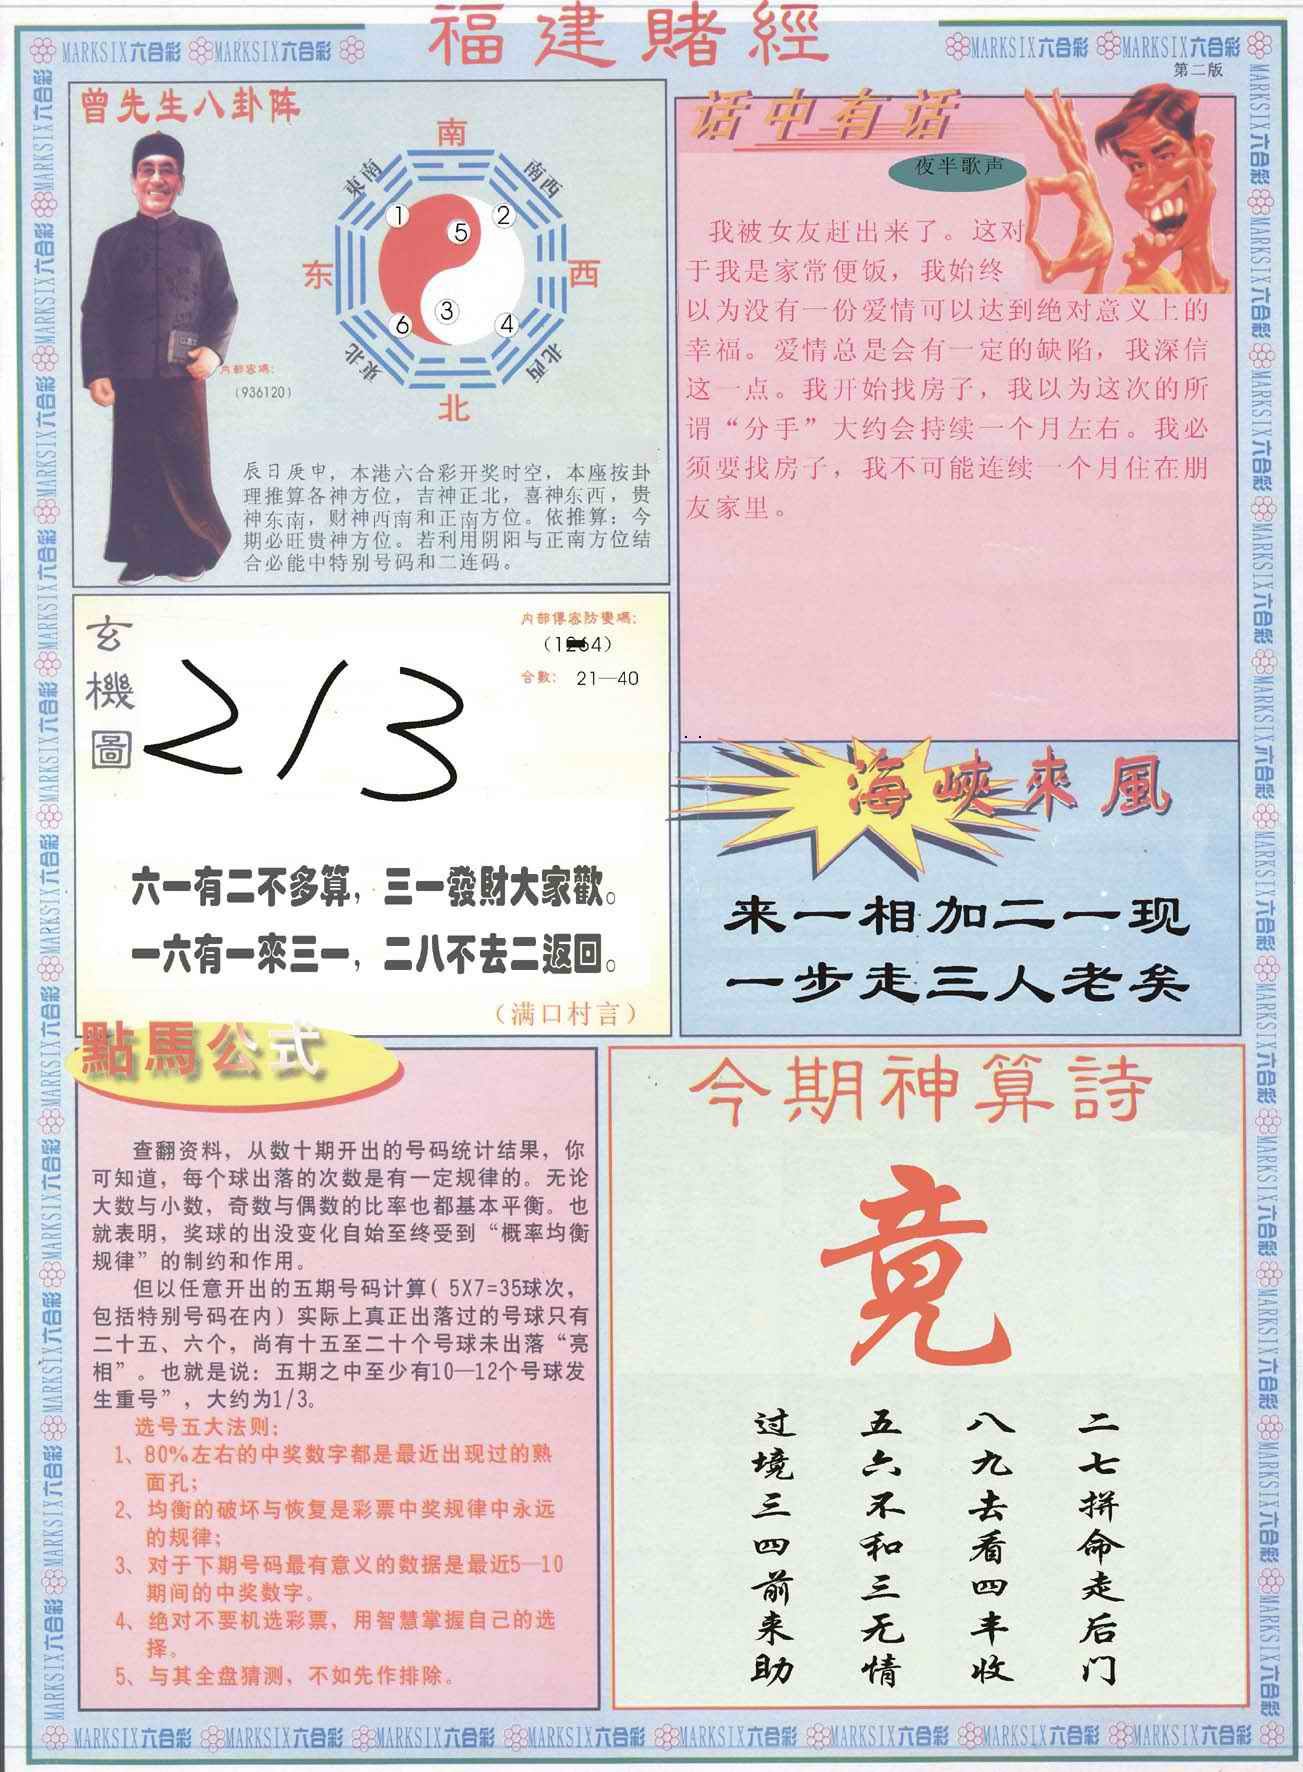 福建賭經
MARKSIX六合彩 MARKSIX六合彩
MARKSIX六合彩 MARKSIX六合彩
第二版
曾先生八卦阵
南
東南
南西
1
2
5
东
西
3
6
4
東北
北西
北
内部密碼：
（936120）
辰日庚申，本港六合彩开奖时空，本座按卦
理推算各神方位，吉神正北，喜神东西，贵
神东南，财神西南和正南方位。依推算：今
期必旺贵神方位。若利用阴阳与正南方位结
合必能中特别号码和二连码。
话中有话
夜半歌声
我被女友赶出来了。这对
于我是家常便饭，我始终
以为没有一份爱情可以达到绝对意义上的
幸福。爱情总是会有一定的缺陷，我深信
这一点。我开始找房子，我以为这次的所
谓“分手”大约会持续一个月左右。我必
须要找房子，我不可能连续一个月住在朋
友家里。
玄機圖
内部傳密防變碼：
合數： 21—40
213
六一有二不多算，三一發財大家歡。
一六有一來三一，二八不去二返回。
（满口村言）
海峽來風
来一相加二一现
一步走三人老矣
點馬公式
查翻资料，从数十期开出的号码统计结果，你
可知道，每个球出落的次数是有一定规律的。无论
大数与小数，奇数与偶数的比率也都基本平衡。也
就表明，奖球的出没变化自始至终受到“概率均衡
规律”的制约和作用。
但以任意开出的五期号码计算（5X7=35球次，
包括特别号码在内）实际上真正出落过的号球只有
二十五、六个，尚有十五至二十个号球未出落“亮
相”。也就是说：五期之中至少有10—12个号球发
生重号”，大约为1/3。
选号五大法则：
1、80%左右的中奖数字都是最近出现过的熟
面孔；
2、均衡的破坏与恢复是彩票中奖规律中永远
的规律；
3、对于下期号码最有意义的数据是最近5—10
期间的中奖数字。
4、绝对不要机选彩票，用智慧掌握自己的选
择。
5、与其全盘猜测，不如先作排除。
今期神算詩
竟
二七拼命走后门
八九去看四丰收
五六不和三无情
过境三四前来助
MARKSIX六合彩 MARKSIX六合彩 MARKSIX六合彩 MARKSIX六合彩 MARKSIX六合彩 MARKSIX六合彩 MARKSIX六合彩 MARKSIX六合彩